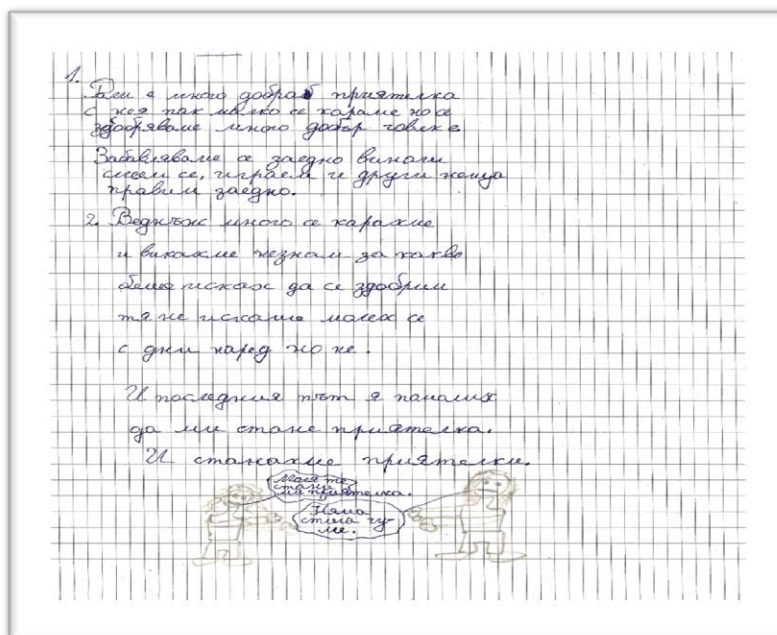 1.
Гени е много добра приятелка
с нея пак малко се караме но се
здобряваме много добър човек е
Забавляваме се заедно винаги
смеем се, играем и други неща
правим заедно.
2. Веднъж много се карахме
и викахме незнам за какво
беше исках да се здобрим
тя не искаше молех се
с дни наред но не.
И последния път я помолих
да ми стане приятелка.
И станахме приятелки.
Моля те
стани
ми приятелка.
Няма
стига чу-
ме.